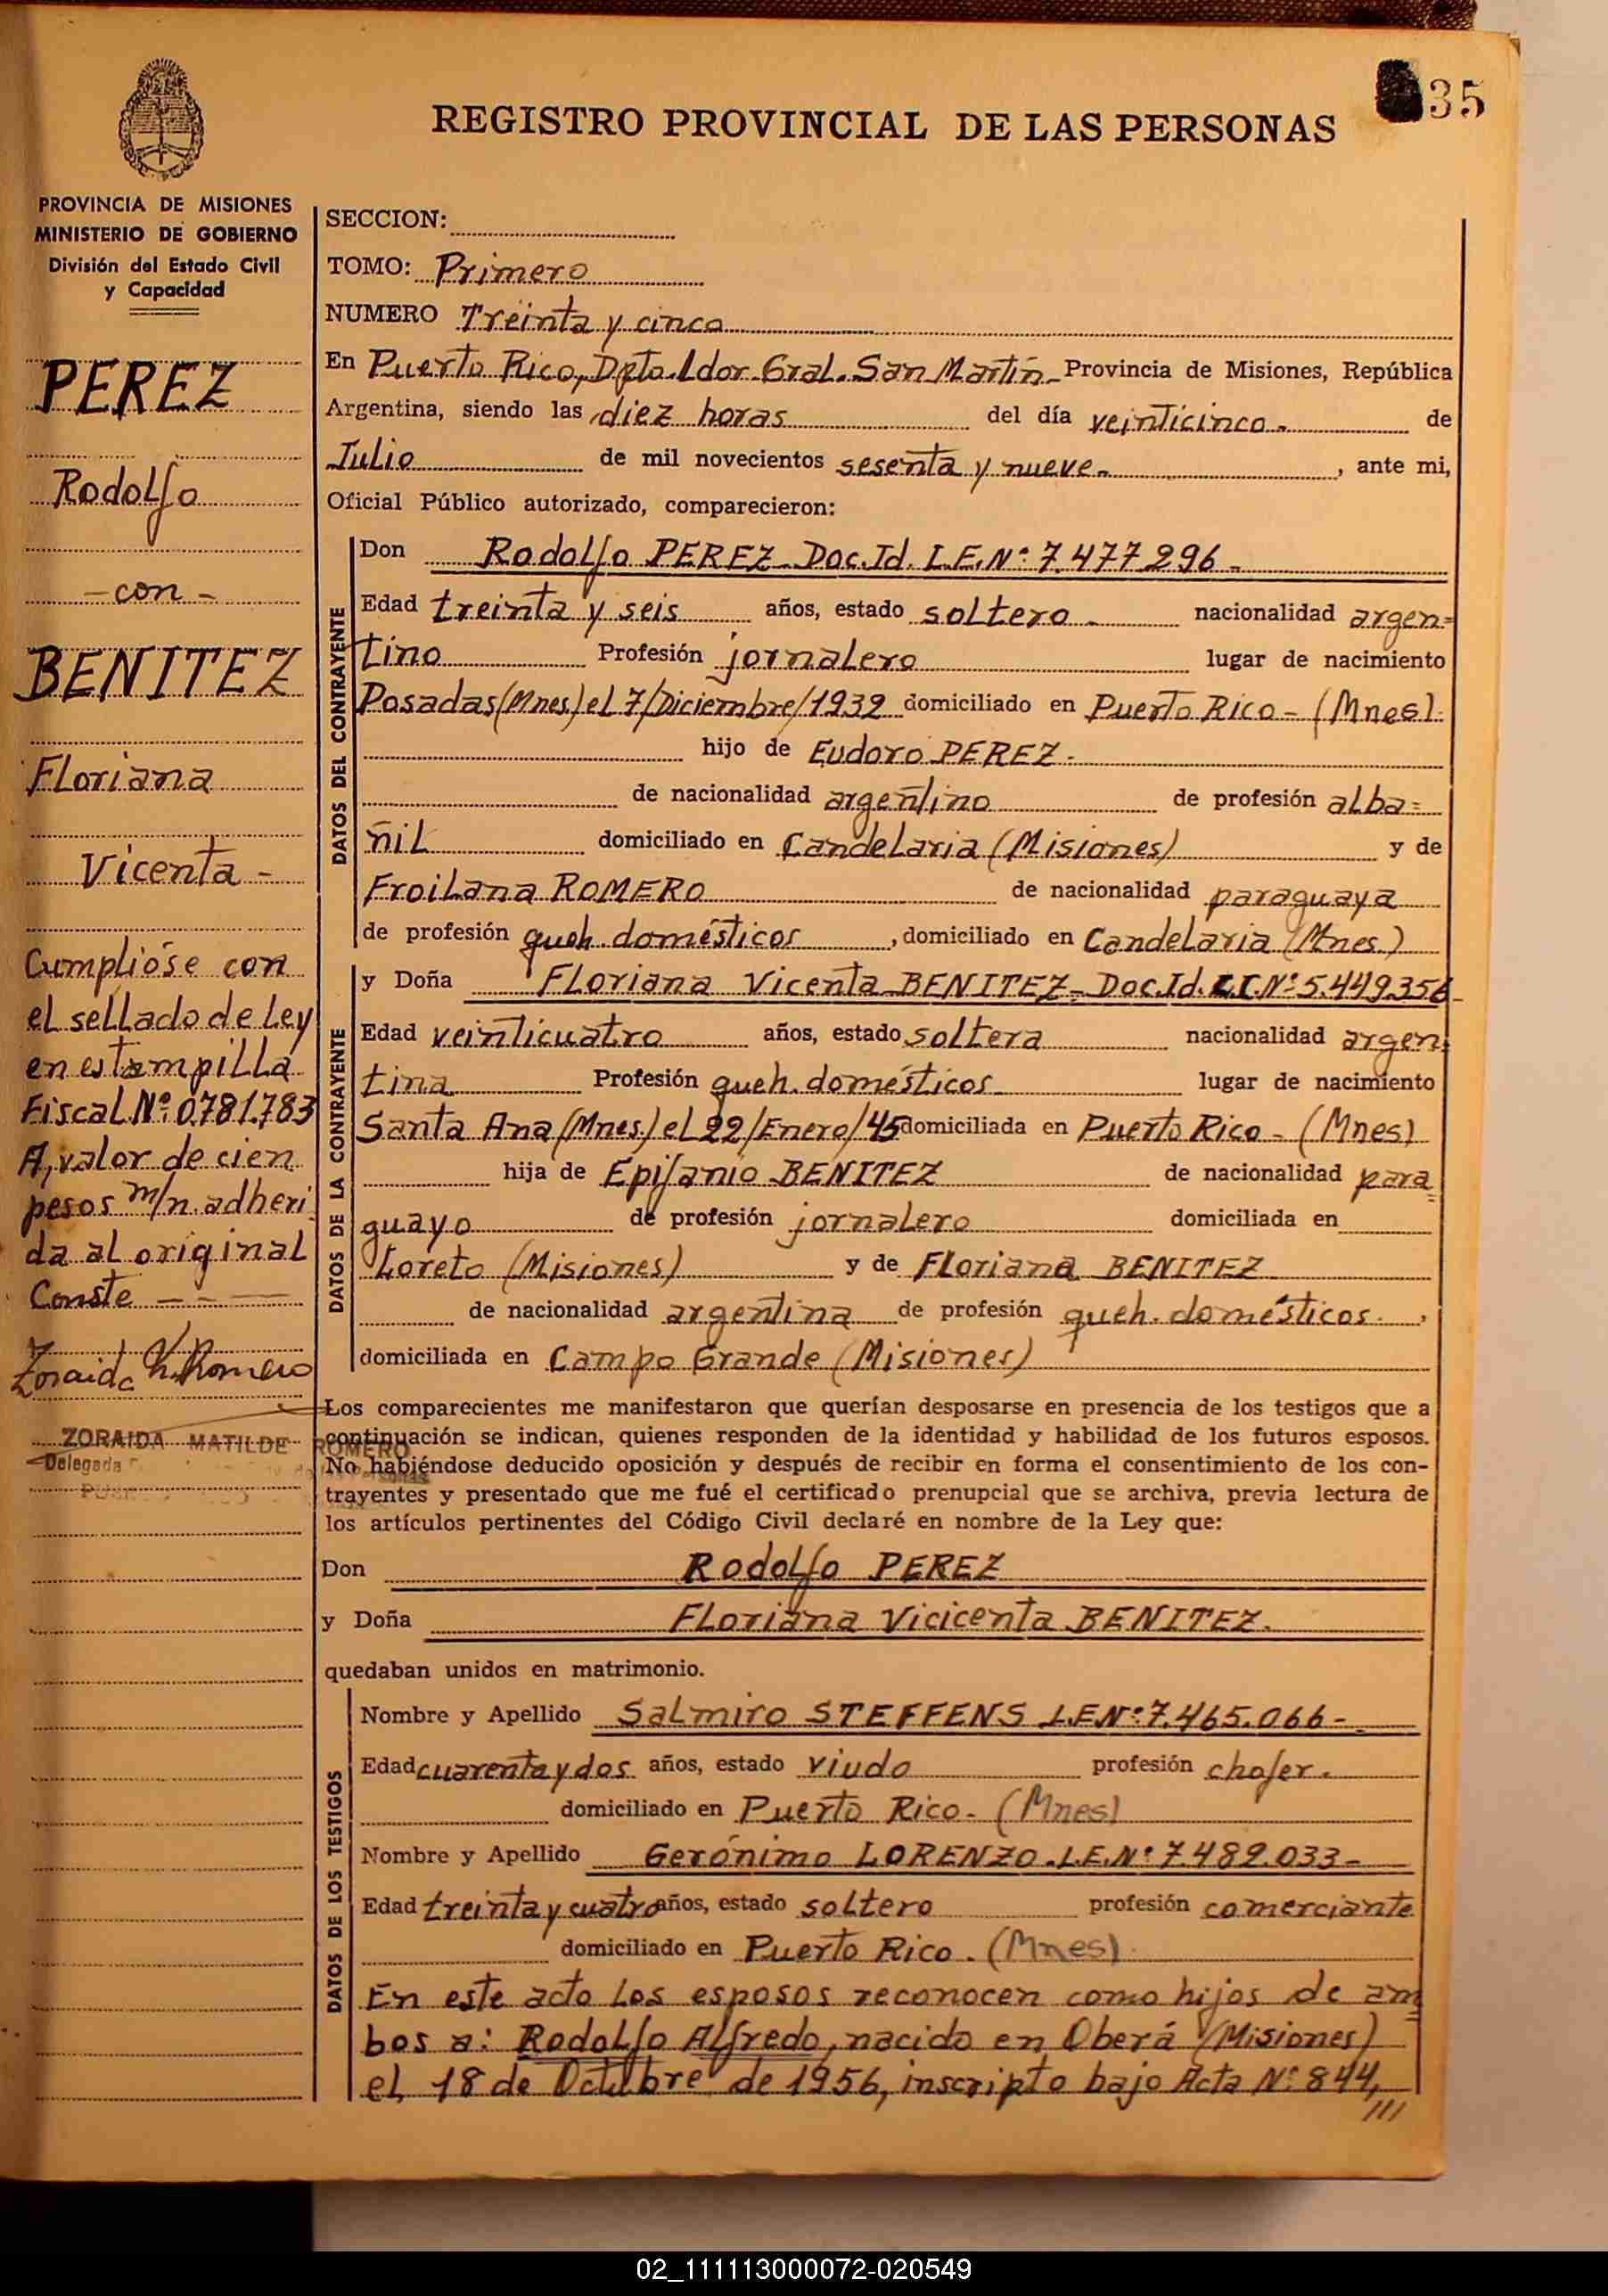 35
REGISTRO PROVINCIAL DE LAS PERSONAS
PROVINCIA DE MISIONES
MINISTERIO DE GOBIERNO
División del Estado Civil
y Capacidad
PEREZ
Rodolfo
- con -
BENITEZ
Floriana
Vicenta -
Cumplióse con
el sellado de Ley
en estampilla
Fiscal Nº: 0781.783
A, valor de cien
pesos m/n. adheri
da al original
Conste - - -
Zoraida M. Romero
ZORAIDA MATILDE ROMERO
Delegada
SECCION:
TOMO: Primero
NUMERO Treinta y cinco
En Puerto Rico, Dpto. Ldor. Gral. San Martín - Provincia de Misiones, República
Argentina, siendo las diez horas del día veinticinco - de
Julio de mil novecientos sesenta y nueve - , ante mi,
Oficial Público autorizado, comparecieron:
DATOS DEL CONTRAYENTE
Don Rodolfo PEREZ - Doc. Id. L.E. Nº: 7.477.296 -
Edad treinta y seis años, estado soltero - nacionalidad argen=
tino Profesión jornalero lugar de nacimiento
Posadas (Mnes) el 7/Diciembre/1932 domiciliado en Puerto Rico - (Mnes).
hijo de Eudoro PEREZ -
de nacionalidad argentino de profesión alba=
ñil domiciliado en Candelaria (Misiones) y de
Froilana ROMERO de nacionalidad paraguaya
de profesión queh. domésticos , domiciliado en Candelaria (Mnes.)
DATOS DE LA CONTRAYENTE
y Doña Floriana Vicenta BENITEZ - Doc. Id. C.I. Nº: 5.449.356 -
Edad veinticuatro años, estado soltera nacionalidad argen=
tina Profesión queh. domésticos lugar de nacimiento
Santa Ana (Mnes.) el 22/Enero/45 domiciliada en Puerto Rico - (Mnes)
hija de Epifanio BENITEZ de nacionalidad para=
guayo de profesión jornalero domiciliada en
Loreto (Misiones) y de Floriana BENITEZ
de nacionalidad argentina de profesión queh. domésticos ,
domiciliada en Campo Grande (Misiones)
Los comparecientes me manifestaron que querían desposarse en presencia de los testigos que a
continuación se indican, quienes responden de la identidad y habilidad de los futuros esposos.
No habiéndose deducido oposición y después de recibir en forma el consentimiento de los con-
trayentes y presentado que me fué el certificado prenupcial que se archiva, previa lectura de
los artículos pertinentes del Código Civil declaré en nombre de la Ley que:
Don Rodolfo PEREZ
y Doña Floriana Vicicenta BENITEZ.
quedaban unidos en matrimonio.
DATOS DE LOS TESTIGOS
Nombre y Apellido Salmiro STEFFENS L.E.Nº: 7.465.066 -
Edad cuarenta y dos años, estado viudo profesión chofer.
domiciliado en Puerto Rico - (Mnes)
Nombre y Apellido Gerónimo LORENZO - L.E. Nº: 7.482.033 -
Edad treinta y cuatro años, estado soltero profesión comerciante
domiciliado en Puerto Rico. (Mnes)
En este acto Los esposos reconocen como hijos de am=
bos a: Rodolfo Alfredo, nacido en Oberá (Misiones)
el 18 de Octubre de 1956, inscripto bajo Acta Nº 844,
///
02_111113000072-020549